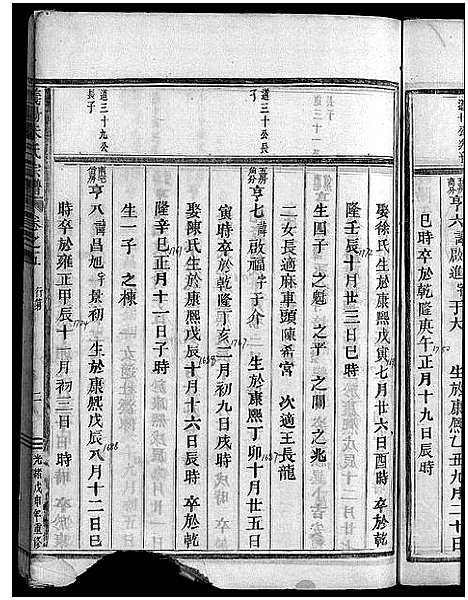 亨六諱啟進字于大 生於康熙乙丑九月二十日
巳時卒於乾隆庚午正月十九日辰時
1750
娶徐氏生於康熙戊寅七月廿六日酉時 卒於乾
隆壬辰十月廿三日巳時
1772
生四子 之魁 之平 之關 之兆
二女長適麻車頭陳希宮 次適王長龍
道三十公長子
亨七諱啟福字于介 生於康熙丁卯十月廿五日
1687
寅時卒於乾隆丁亥二月初九日戌時
1767
娶陳氏生於康熙戊辰十月十六日辰時 卒於乾
1688
隆辛巳正月十一日子時
1761
生一子 之棟
道三十九公長子
亨八諱昌旭字景初 生於康熙戊辰八月十二日巳
1688
時卒於雍正甲辰十一月初三日 時
1724
朱氏宗譜
卷之五
行第
光緒戊申年重修